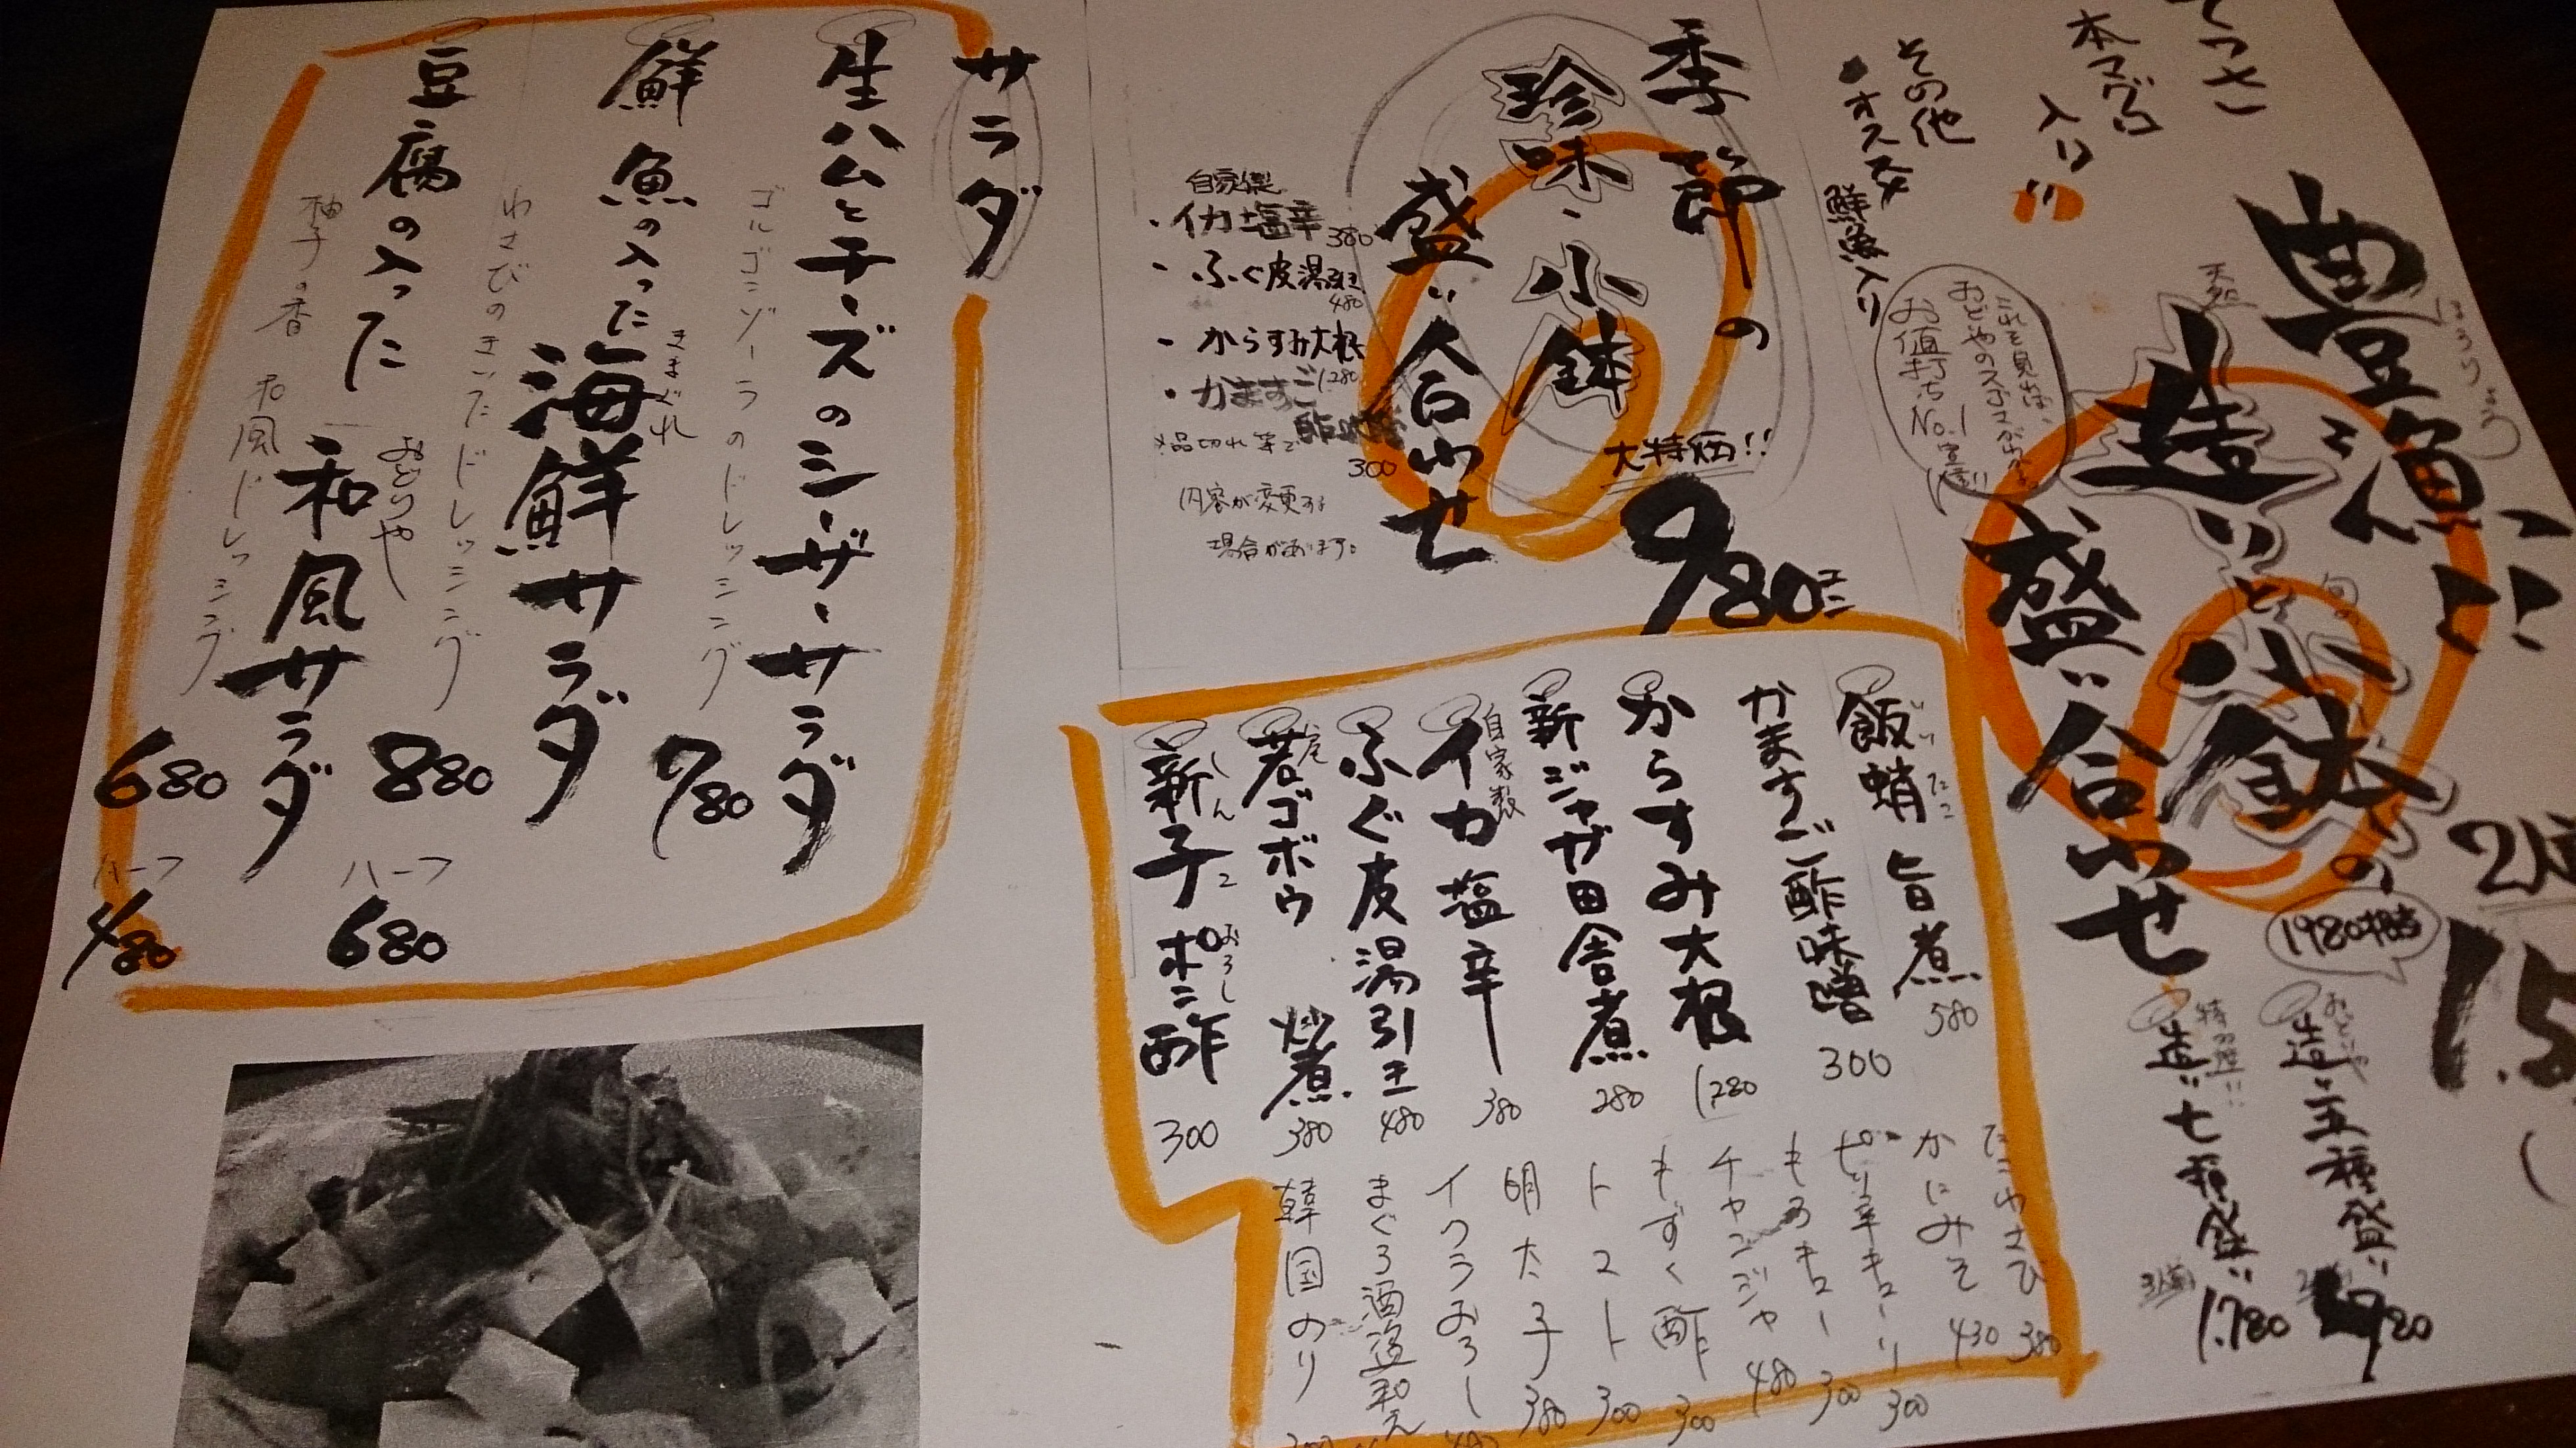 本マグロ
入り!!
その他
・オススメ
鮮魚入り
豊漁
造り
と
小鉢の
盛り合わせ
お値打ち
No.1
季節の
珍味・小鉢
盛り合わせ
大特価!!
980
自家製
・イカ塩辛
380
・ふぐ皮湯引
480
・からすみ大根
1280
・かますご
酢味噌
300
※品切れ等で
内容が変更する
場合があります。
サラダ
生ハムとチーズのシーザーサラダ
ゴルゴンゾーラのドレッシング
780
鮮魚の入った海鮮サラダ
きまぐれ
わさびのきいたドレッシング
880
ハーフ
680
豆腐の入った和風サラダ
おどりや
柚子の香 和風ドレッシング
680
ハーフ
480
飯蛸 旨煮
いいだこ
580
かますご酢味噌
300
からすみ大根
1280
新ジャガ田舎煮
280
自家製
イカ塩辛
380
ふぐ皮湯引き
480
若ゴボウ 炒煮
380
新子 おろしポン酢
しんこ
300
たこわさび 380
かにみそ 430
ピリ辛キューリ 300
もろキュー 300
チャンジャ 480
もずく酢 300
トマト 300
明太子 380
イクラおろし
まぐろ酒盗和え
韓国のり
おどりや
造り五種盛り
特選!!
造り七種盛り
1.780